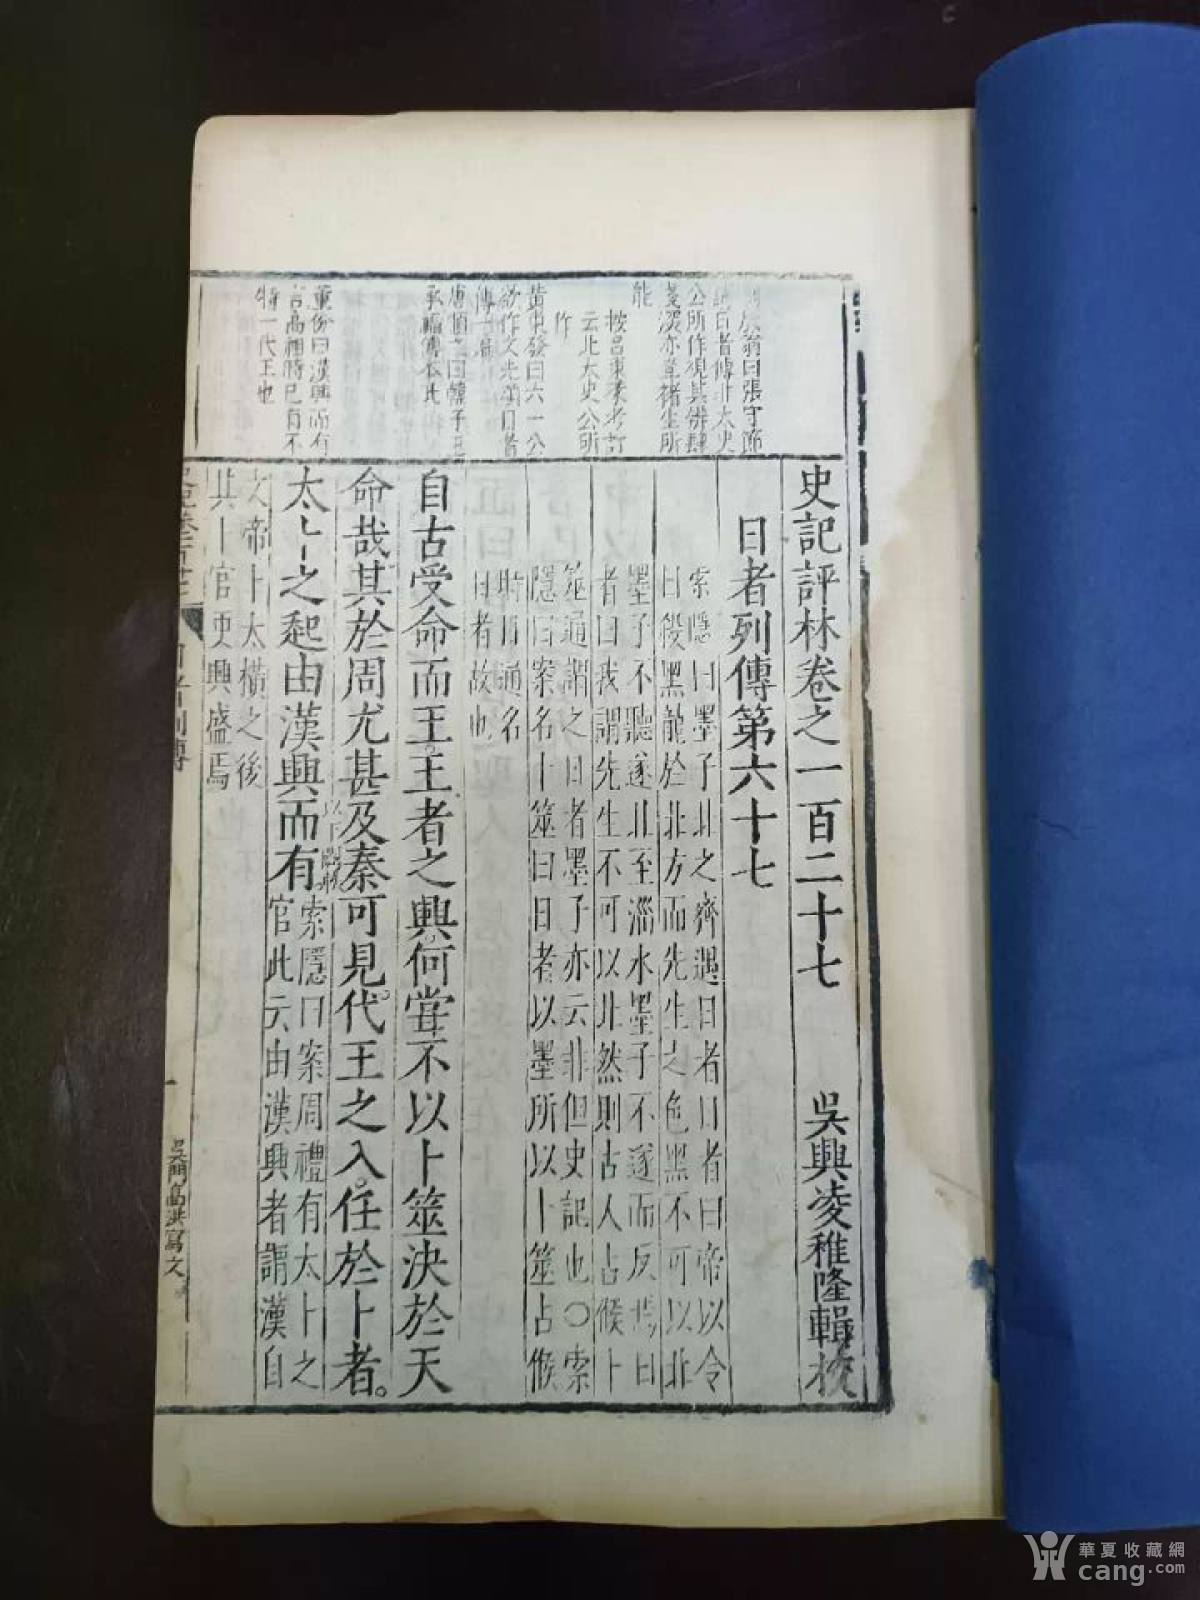 辰翁曰張守節
日者傳非太史
公所作視其俳肆
淺深亦豈褚生所
能
按呂東萊考訂
云此太史公所
作
黃東發曰六一公
欲作文先誦日者
傳一遍
唐順之曰韓子王
承福傳本此
董份曰漢興而有
言高祖時已有不
特一代王也
史記評林卷之一百二十七 吳興凌稚隆輯校
日者列傳第六十七
索隱曰墨子北之齊遇日者日者曰帝以令
日殺黑龍於北方而先生之色黑不可以北
墨子不聽遂北至淄水墨子不遂而反焉日
者曰我謂先生不可以北然則古人占候卜
筮通謂之日者墨子亦云非但史記也○索
隱曰案名卜筮曰日者以墨所以卜筮占候
時日通名
日者故也
自古受命而王王者之興何嘗不以卜筮決於天
命哉其於周尤甚及秦可見代王之入任於卜者。
太卜之起由漢興而有
索隱曰案周禮有太卜之
官此云由漢興者謂漢自
文帝卜太橫之後
其卜官更興盛焉
日者列傳
一
吳門高洪寫文
華夏收藏網
cang.com